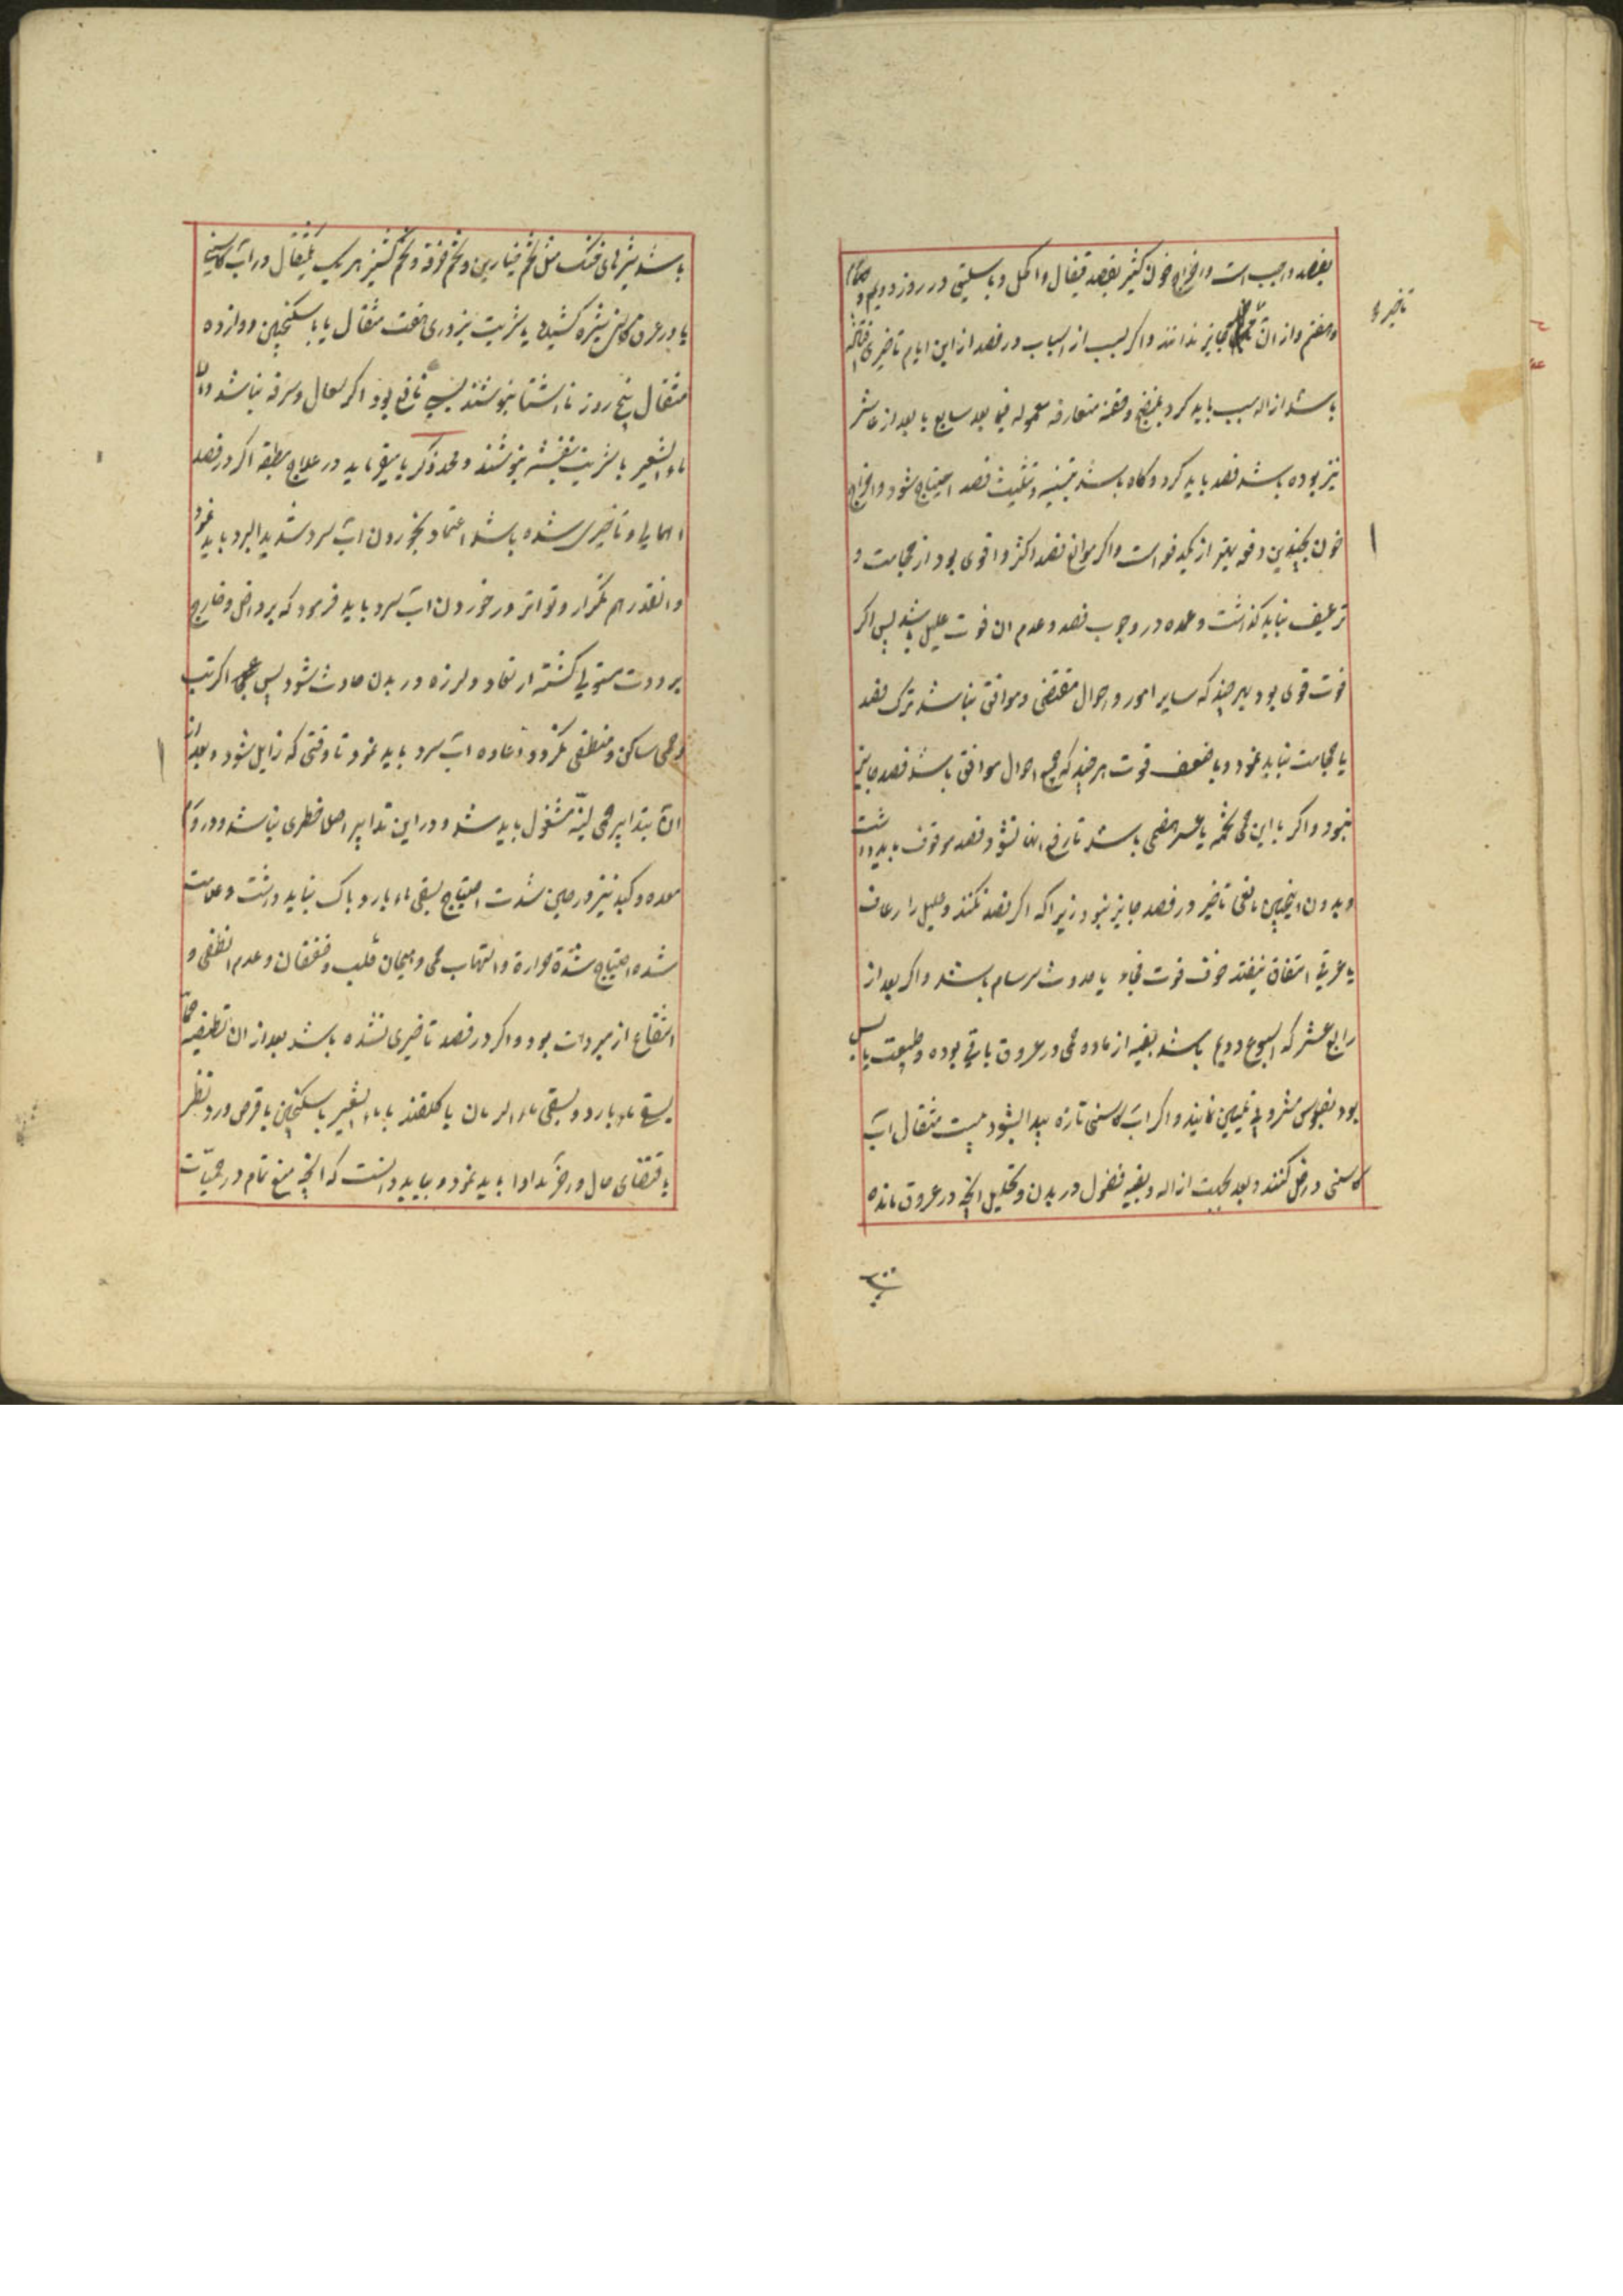 بفصد واجب است و اخراج خون کثیر بفصد قیفال و اکحل و باسلیق در روز دویم و
تاخیر
و هفتم و از ان جایز ندانند و اکر بسبب از اسباب در فصد از این ایام تاخیری
باشد ازاله سبب باید کرد و حقنه متعارفه معموله بعد سابع یا بعد از عاشر
نیز بوده باشد فصد باید کرد و کاه باشد بتثنیه و تثلیث فصد احتیاج شود و اخراج
خون بچندین دفعه بهتر از یکدفعه است و اکر موانع فصد اکثر و اقوی بود از حجامت و
ترعیف نباید کذاشت و عمده در وجوب فصد و عدم ان قوت علیل باشد پس اکر
قوت قوی بود هر چند که سایر امور و احوال مقتضی و موافق نباشد ترک فصد
یا حجامت نباید نمود و با ضعف قوت هر چند که جمیع احوال موافق باشد فصد جایز
نبود و اکر با این حمی تخمه یا عسر هضمی باشد تا رفع انها نشود فصد موقوف باید داشت
و بدون اینچنین مانعی تاخیر در فصد جایز نبود زیرا که اکر فصد نکنند و علیل را رعاف
یا عرقی اتفاق نیفتد خوف موت فجاه یا حدوث سرسام باشد و اکر بعد از
رابع عشر که اسبوع دویم باشد بقیه از ماده حمی در عروق باقی بوده و طبیعت یابس
بود بفلوس مشروبا تلیین نمایند و اکر اب کاسنی تازه پیدا بشود بیست مثقال اب
کاسنی داخل کنند و بعد بجهت ازاله و بقیه فضول در بدن و تحلیل انچه در عروق مانده
باشد شیرهای خنک مثل تخم خیارین و تخم خرفه و تخم کشنیز هر یک یکمثقال در اب کاسنی
یا در عرق کاسنی شیره کشیده با شربت بزوری هفت مثقال یا با سکنجبین دوازده
مثقال پنج روز ناشتا بنوشند بسی نافع بود اکر سعال و سرفه نباشد و الا
ماء الشعیر با شربت بنفشه بنوشند و محمد زکریا میفرماید در علاج مطبقه اکر در فصد
اهمالی و تاخیری شده باشد اعتماد بخوردن اب سرد شدید البرد باید نمود
و انقدر هم تکرار و تواتر در خوردن اب سرد باید فرمود که بر داخل و خارج
برودت مستولی کشته ارتعاد و لرزه در بدن حادث شود پس اکر تب
و حمی ساکن و منطفی نکردد اعاده اب سرد باید نمود تا وقتی که زایل شود و بعد از
ان بتدابیر حمی لینه مشغول باید شد و در این تدابیر اصلا خطری نباشد و در
معده و کبد نیز در حین شدت احتیاج بسقی ماء بارد باک نباید داشت و علامت
شده احتیاج شدة حرارة و التهاب حمی و هیجان قلب و خفقان و عدم انطفی و
انتفاع از مبردات بود و اکر در فصد تاخیری نشده باشد بعد از ان تطفیه
بسقی ماء بارد و بسقی ماء الرمان یا کلقند با ماء الشعیر یا سکنجبین با قرص ورد بنظر
باقتضای حال و رخصت ادا باید نمود و بباید دانست که انچه منع تام در حمیات